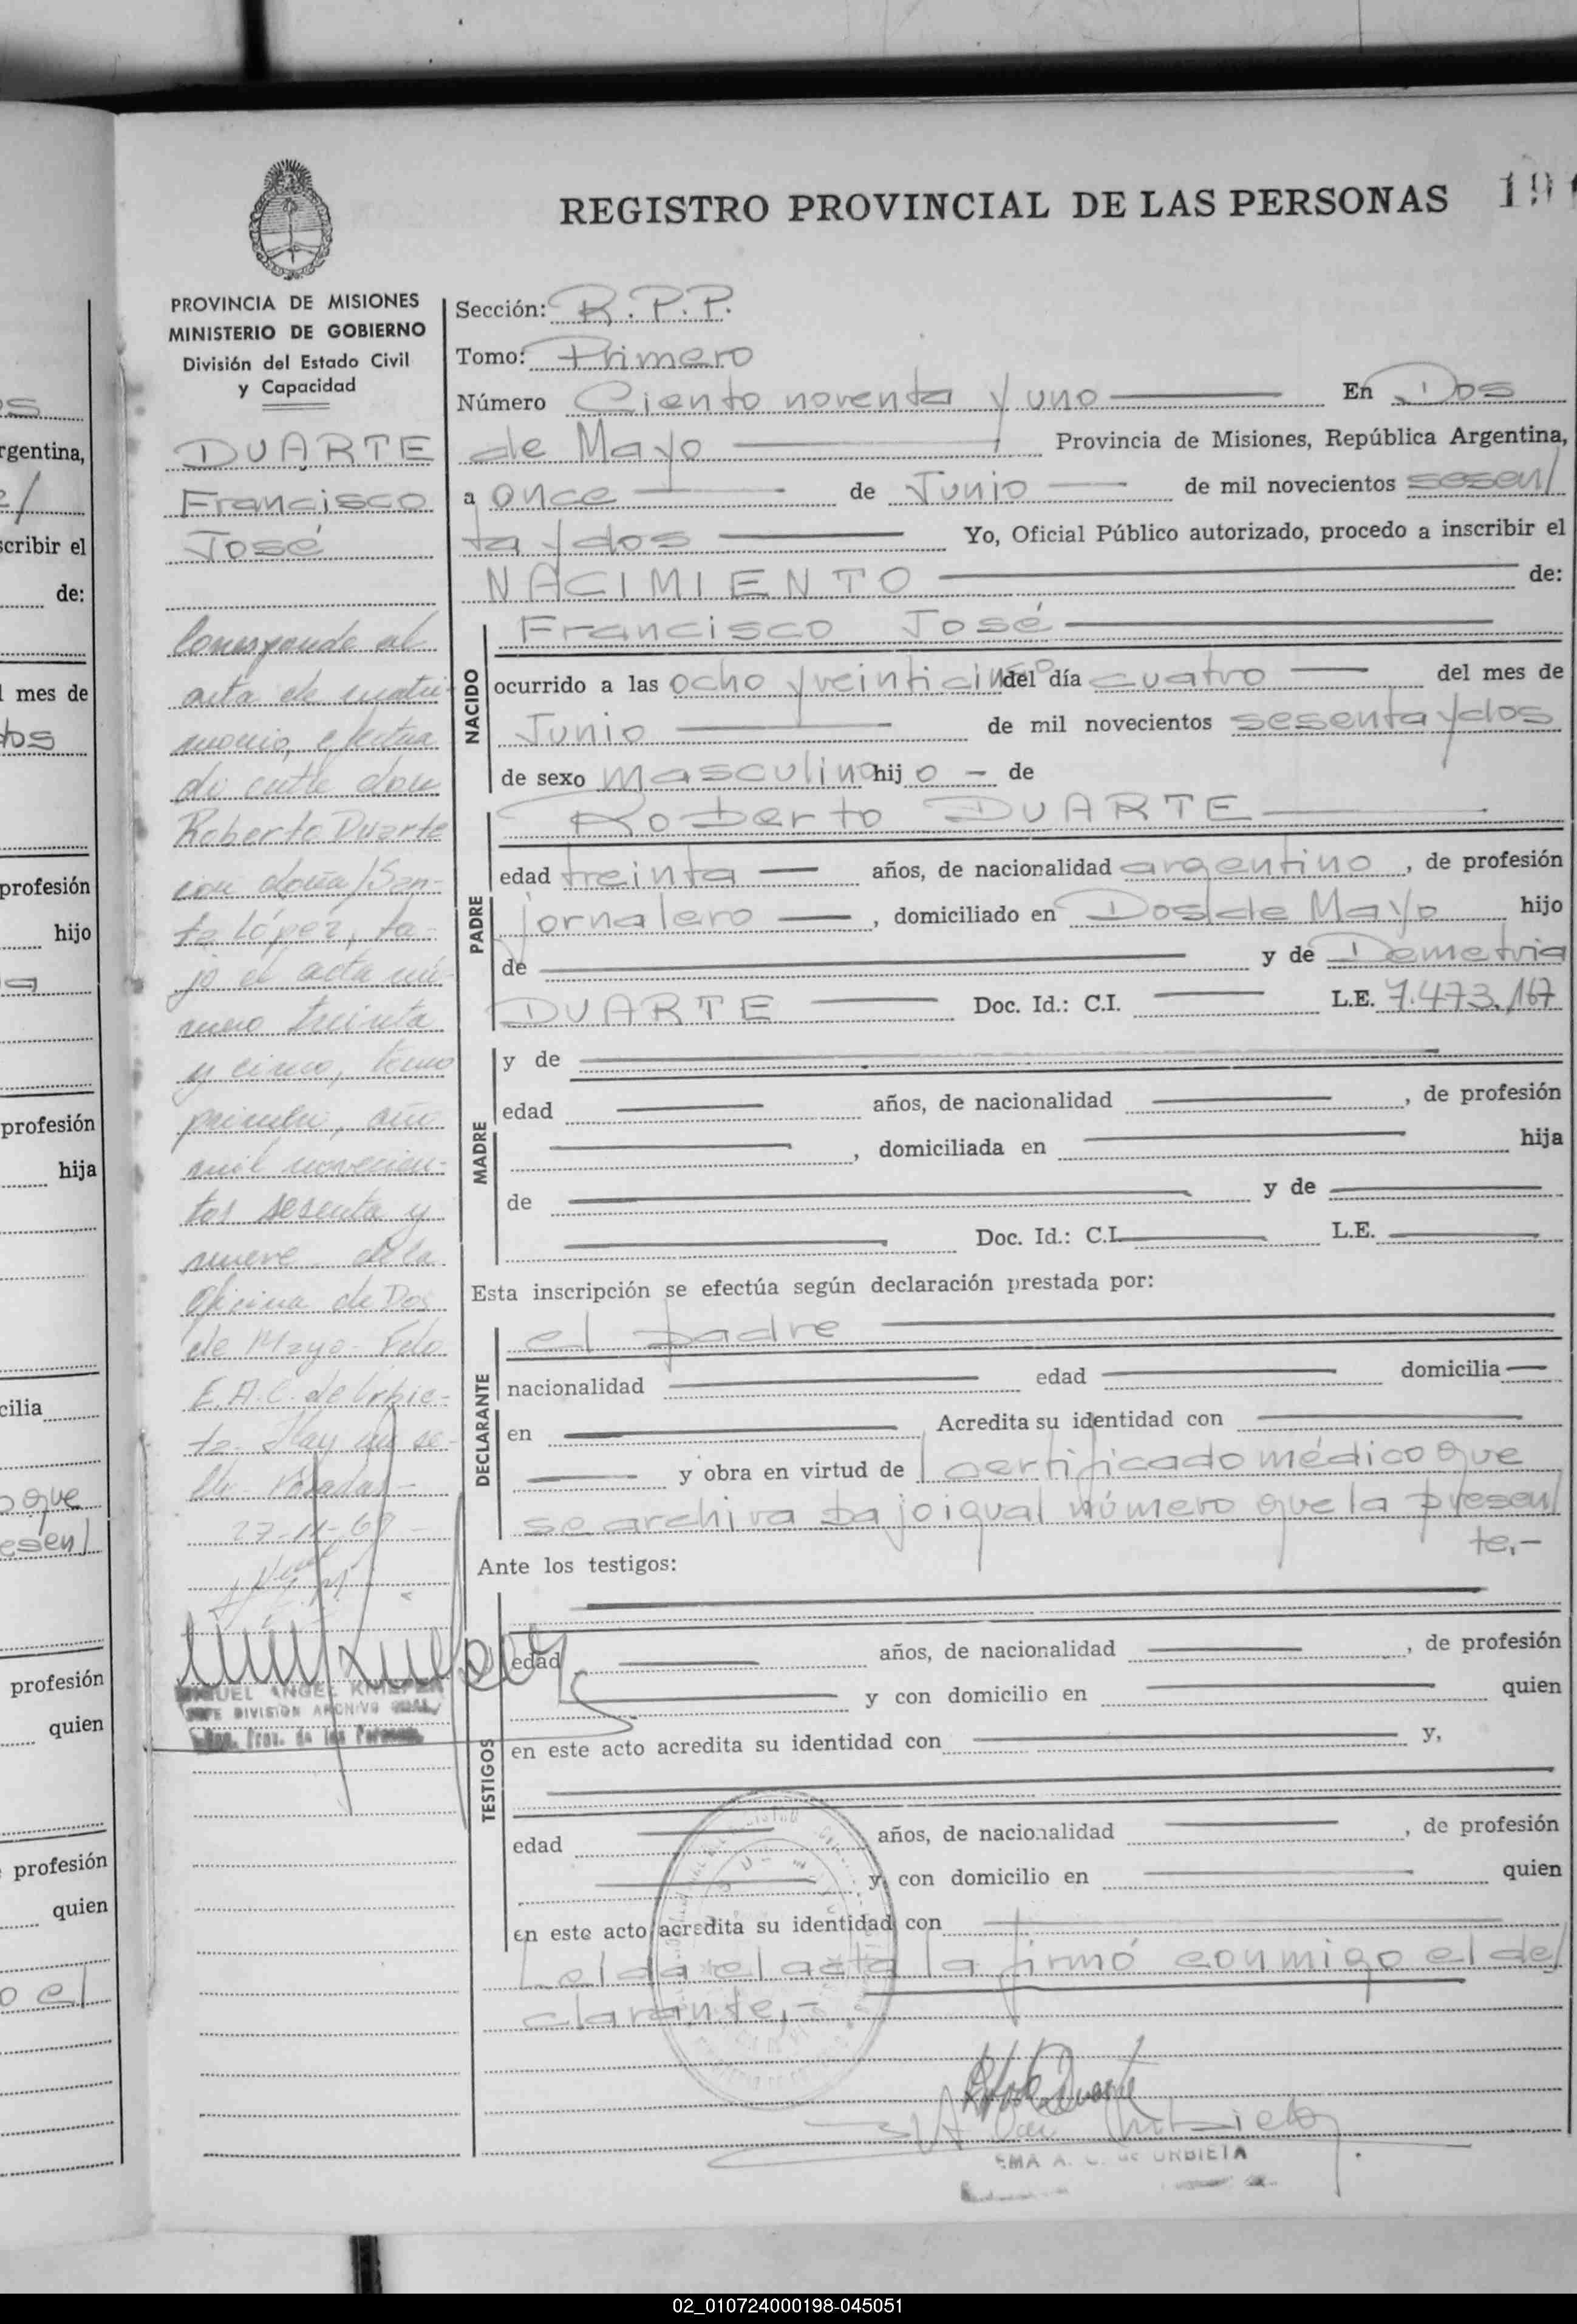 REGISTRO PROVINCIAL DE LAS PERSONAS 19
PROVINCIA DE MISIONES
MINISTERIO DE GOBIERNO
División del Estado Civil
y Capacidad
DUARTE
Francisco
José
Corresponde al
acta de matri-
monio, efectua
do entre don
Roberto Duarte
con doña San-
ta López, ba-
jo el acta nú-
mero treinta
y cinco, tomo
primero, año
mil novecien-
tos sesenta y
nueve de la
Oficina de Dos
de Mayo - Fdo
E.A.C. de Urbie-
ta - Hay un se-
llo - Posadas -
27-11-69 -
MIGUEL ANGEL
JEFE DIVISION ARCHIVO GRAL.
Reg. Prov. de las Personas
Sección: R.P.P.
Tomo: Primero
Número Ciento noventa y uno En Dos
de Mayo Provincia de Misiones, República Argentina,
a once de Junio de mil novecientos sesen/
ta y dos Yo, Oficial Público autorizado, procedo a inscribir el
NACIMIENTO de:
NACIDO
Francisco José
ocurrido a las ocho y veinticinco del día cuatro del mes de
Junio de mil novecientos sesenta y dos
de sexo masculino hijo - de
PADRE
Roberto DUARTE
edad treinta años, de nacionalidad argentino, de profesión
jornalero, domiciliado en Dos de Mayo hijo
de y de Demetria
DUARTE Doc. Id.: C.I. L.E. 7.473.167
MADRE
y de
edad años, de nacionalidad , de profesión
, domiciliada en hija
de y de
Doc. Id.: C.I. L.E.
Esta inscripción se efectúa según declaración prestada por:
DECLARANTE
el padre
nacionalidad edad domicilia
en Acredita su identidad con
y obra en virtud de certificado médico que
se archiva bajo igual número que la presen/
te.-
Ante los testigos:
TESTIGOS
edad años, de nacionalidad , de profesión
y con domicilio en quien
en este acto acredita su identidad con y,
edad años, de nacionalidad , de profesión
y con domicilio en quien
en este acto acredita su identidad con
Leída el acta la firmó conmigo el de/
clarante.-
Roberto Duarte
EMA A. C. de URBIETA
os
rgentina,
scribir el
de:
l mes de
dos
profesión
hijo
profesión
hija
cilia
o que
esen/
profesión
quien
profesión
quien
o el
02_010724000198-045051